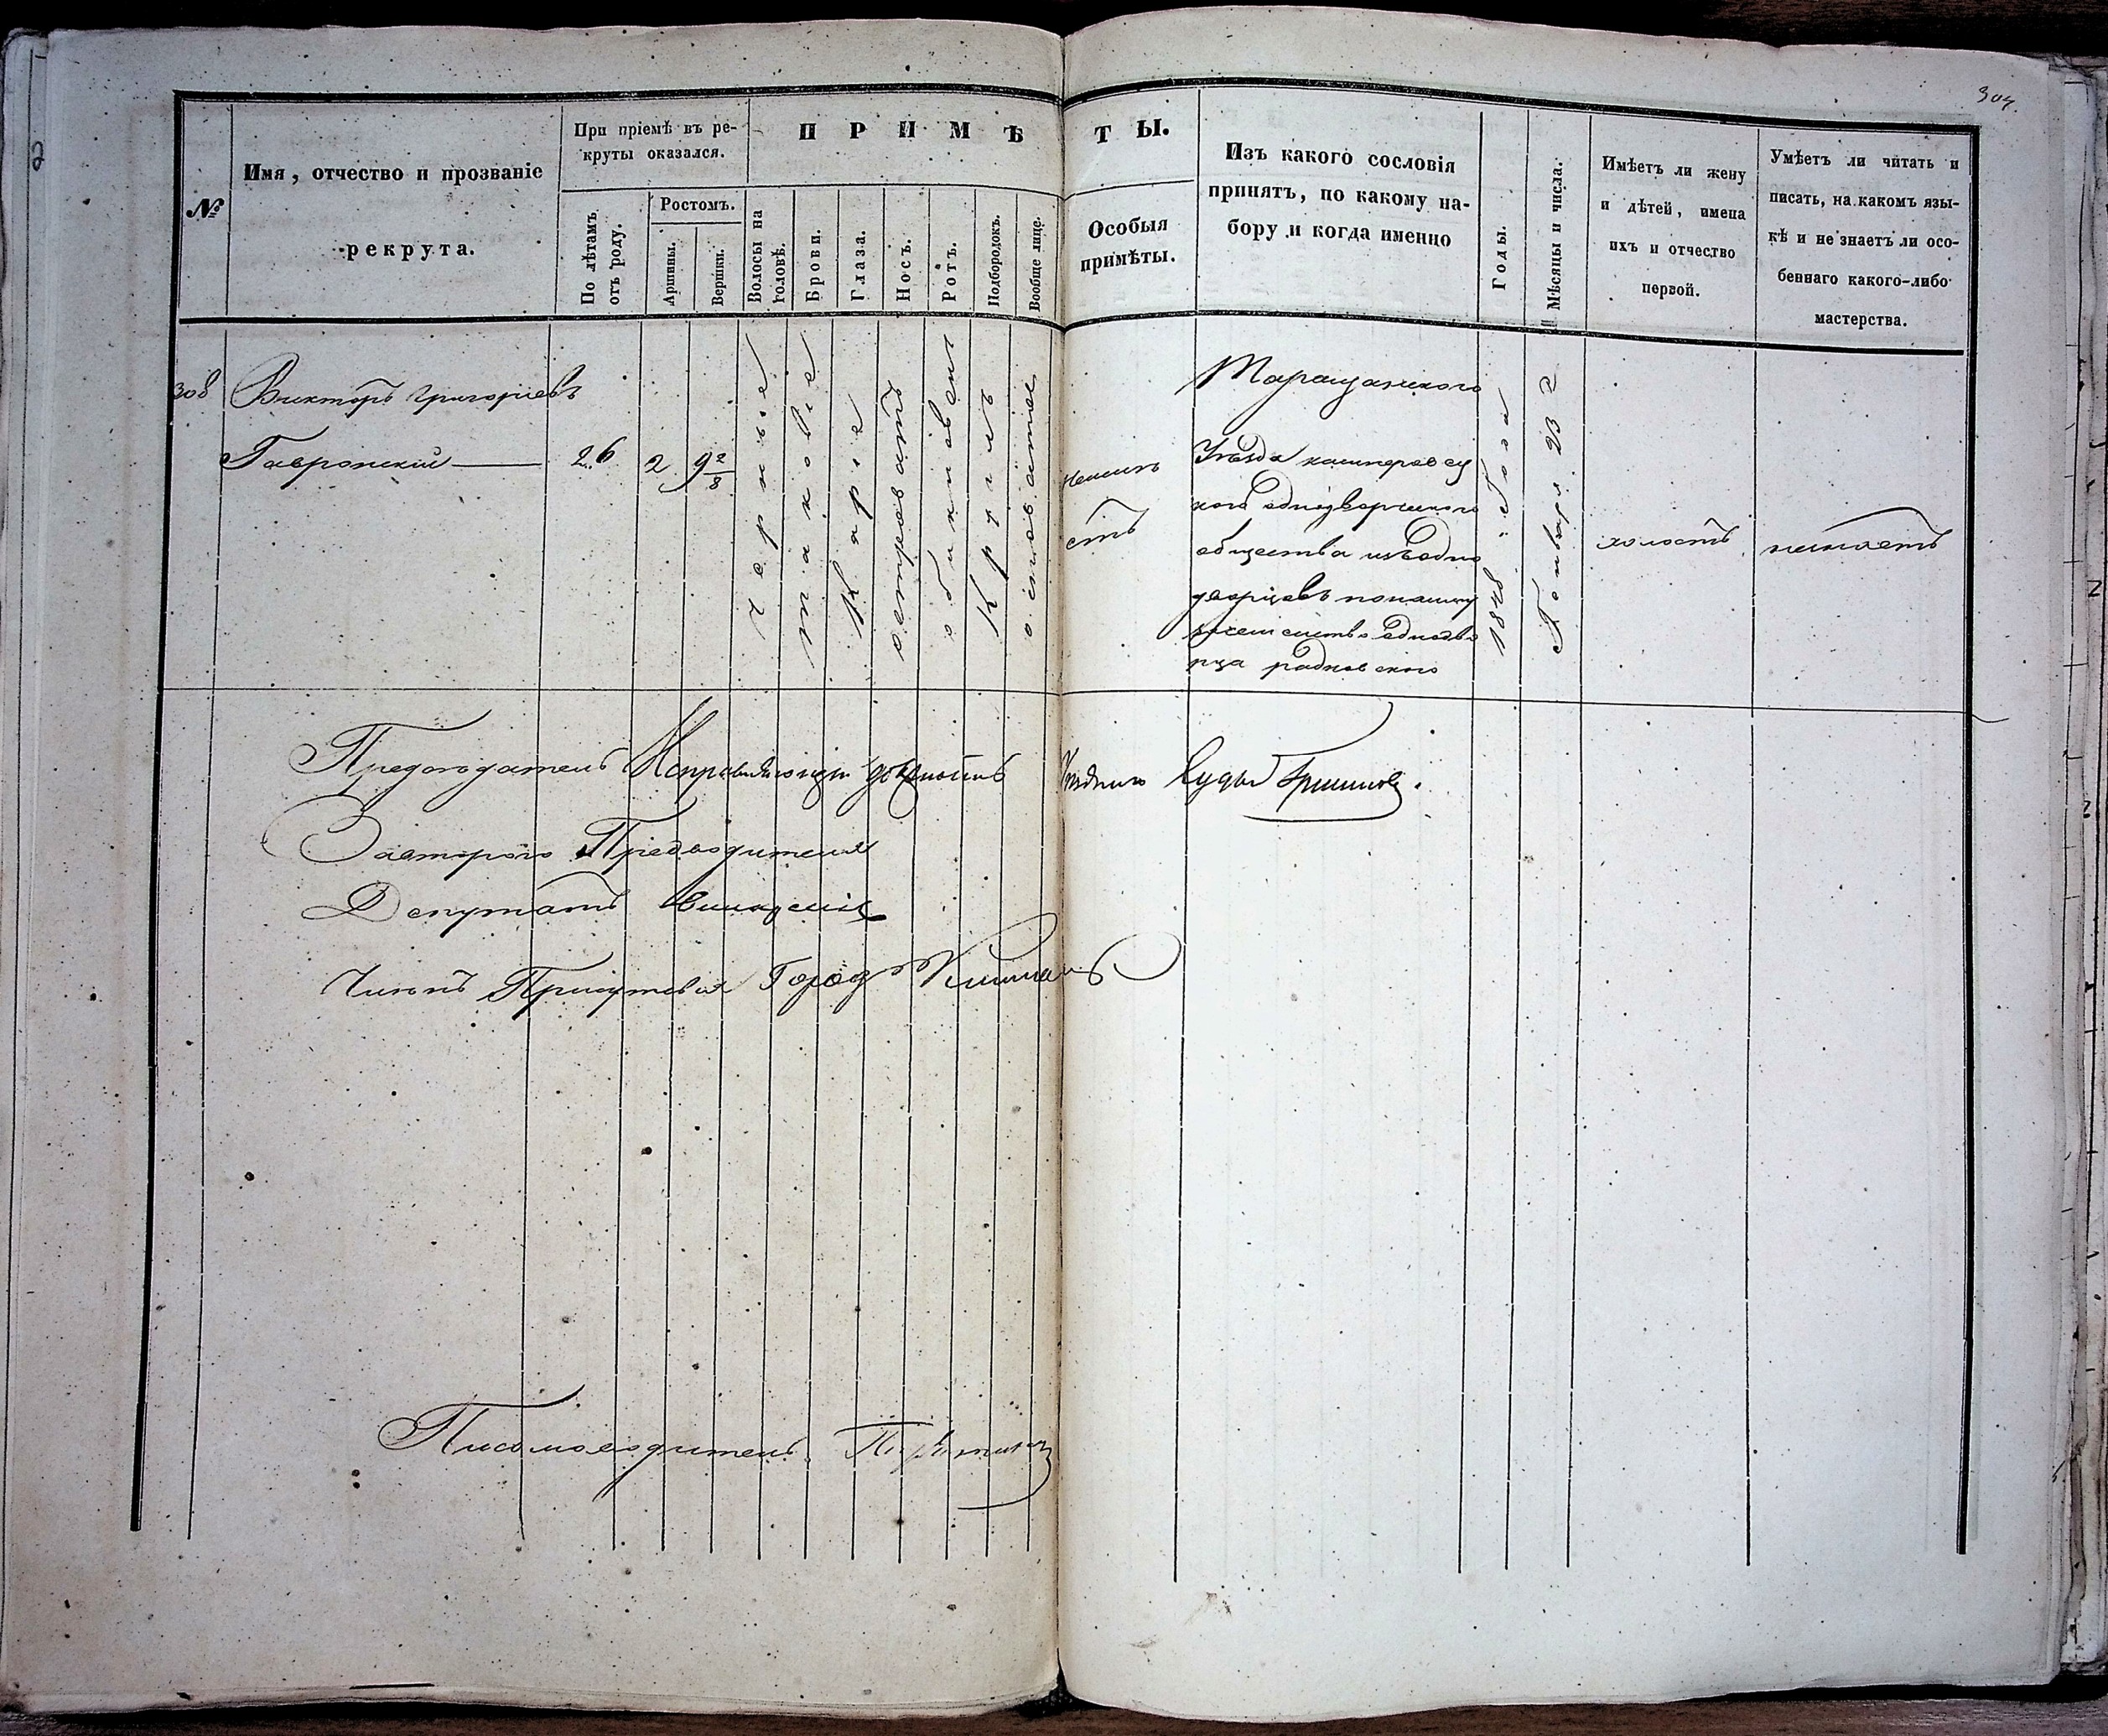 304.
№
Имя, отчество и прозваніе
рекрута.
При пріемѣ въ ре-
круты оказался.
По лѣтамъ
отъ роду.
Ростомъ.
Аршины.
Вершки.
ПРИМѢТЫ.
Волосы на
головѣ.
Брови.
Глаза.
Носъ.
Ротъ.
Подбородокъ.
Вообще лице.
Особыя
примѣты.
Изъ какого сословія
принятъ, по какому на-
бору и когда именно
Годы.
Мѣсяцы и числа.
Имѣетъ ли жену
и дѣтей, имена
ихъ и отчество
первой.
Умѣетъ ли читать и
писать, на какомъ язы-
кѣ и не знаетъ ли осо-
беннаго какого-либо
мастерства.
308
Викторъ Григоріевъ
Гавронский
26
2
9 2/8
черные
таковіе
Каріе
островатъ
Круглъ
Таращанского
Уѣзда
кого однодворческого
общества изъ одно
дворцевъ
1848 Года
Генваря 23
холостъ
Предсѣдатель Исправляющій должность Уѣзднаго Судьи
За втораго Предводителя
Депутатъ
Членъ Присутствія Город
Писмоводитель